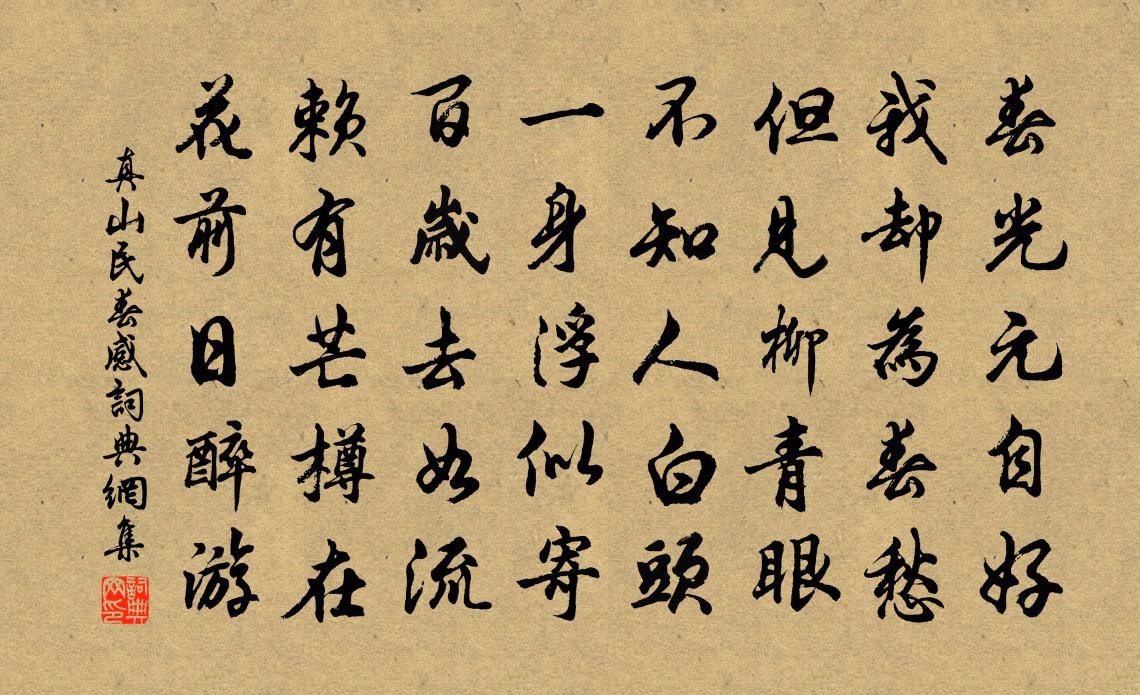 春光元自好
我却為春愁
但見柳青眼
不知人白頭
一身浮似寄
百歲去如流
賴有芒樽在
花前日醉游
真山民春感詞典網集
詞典網印